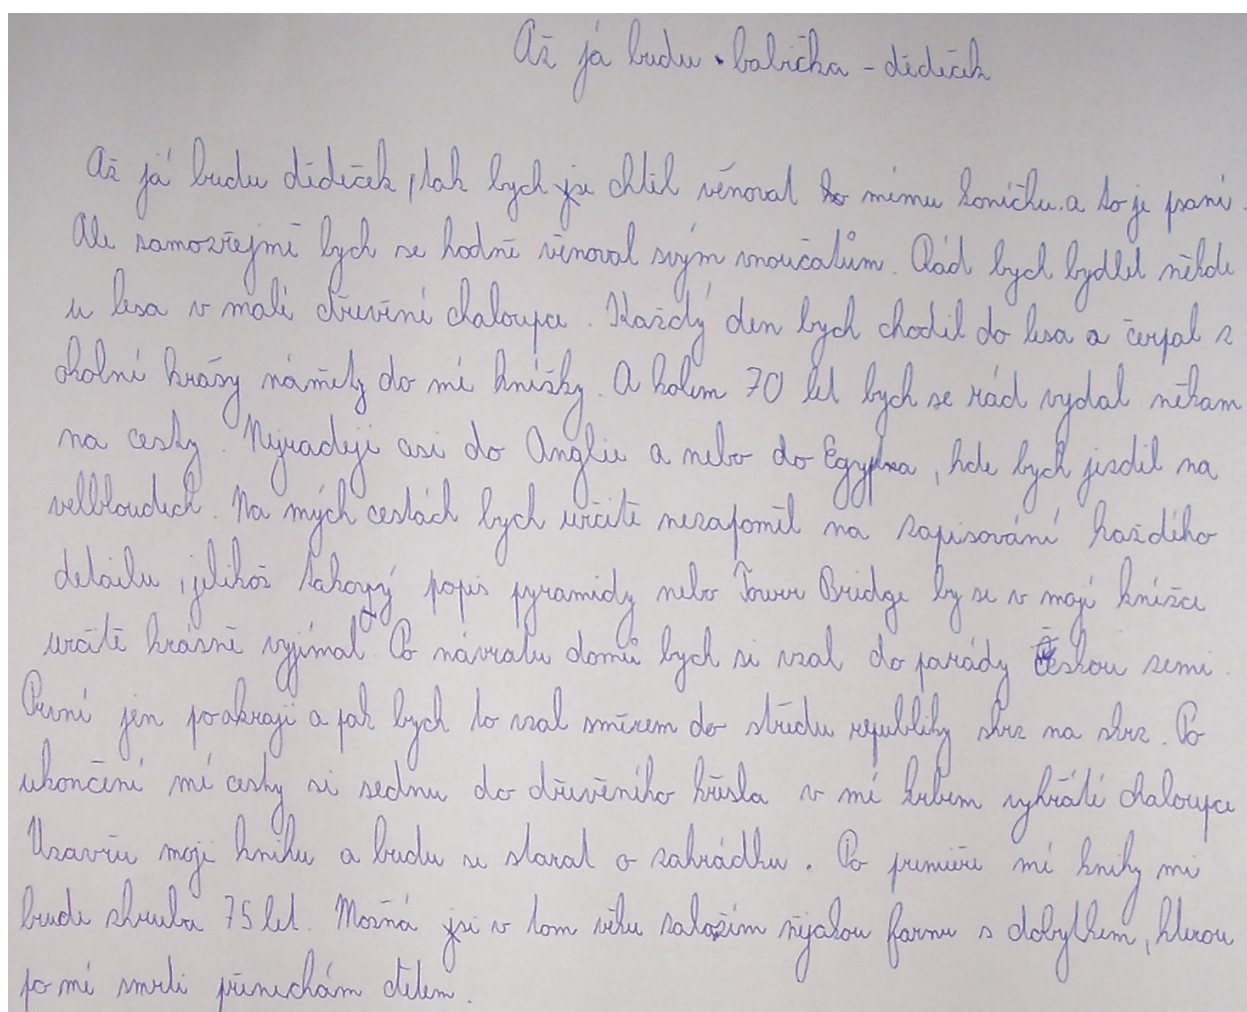 Až já budu babička - dědeček
Až já budu dědeček, tak bych se chtěl věnoval mému koníčku a to je psaní.
Ale samozřejmě bych se hodně věnoval svým vnoučatům. Rád bych bydlel někde
u lesa v malé dřevěné chaloupce. Každý den bych chodil do lesa a čerpal z
okolní krásy náměty do mé knížky. A kolem 70 let bych se rád vydal někam
na cesty. Nejraději asi do Anglie a nebo do Egypta, kde bych jezdil na
velbloudech. Na mých cestách bych určitě nezapoměl na zapisování každého
detailu, jelikož takový popis pyramidy nebo Tower Bridge by se v mojí knížce
určitě krásně vyjímal. Po návratu domů bych si vzal do parády Českou zemi.
První jen po okraji a pak bych to vzal směrem do středu republiky skrz na skrz. Po
ukončení mé cesty si sednu do dřevěného křesla v mé krbem vyhřáté chaloupce
Uzavřu moji knihu a budu se starat o zahrádku. Po premiéře mé knihy mi
bude zhruba 75 let. Možná si v tom věku založím nějakou farmu s dobytkem, kterou
po mé smrti přenechám dětem.